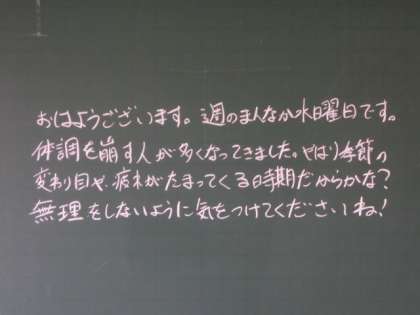 おはようございます。週のまんなか水曜日です。
体調を崩す人が多くなってきました。やはり季節の
変わり目や、疲れがたまってくる時期だからかな?
無理をしないように気をつけてくださいね!